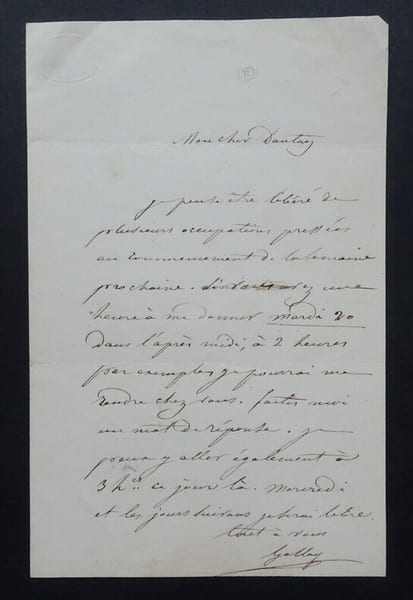 Mon cher Dantan
je pense être libéré de
plusieurs occupations pressées
au commencement de la semaine
prochaine. Si vous avez une
heure à me donner mardi 20
dans l'après midi, à 2 heures
par exemple, je pourrai me
rendre chez vous. faites moi
un mot de réponse. je
peux y aller également à
3 h.es ce jour là. Mercredi
et les jours suivans je serai libre.
tout à vous
Gallay